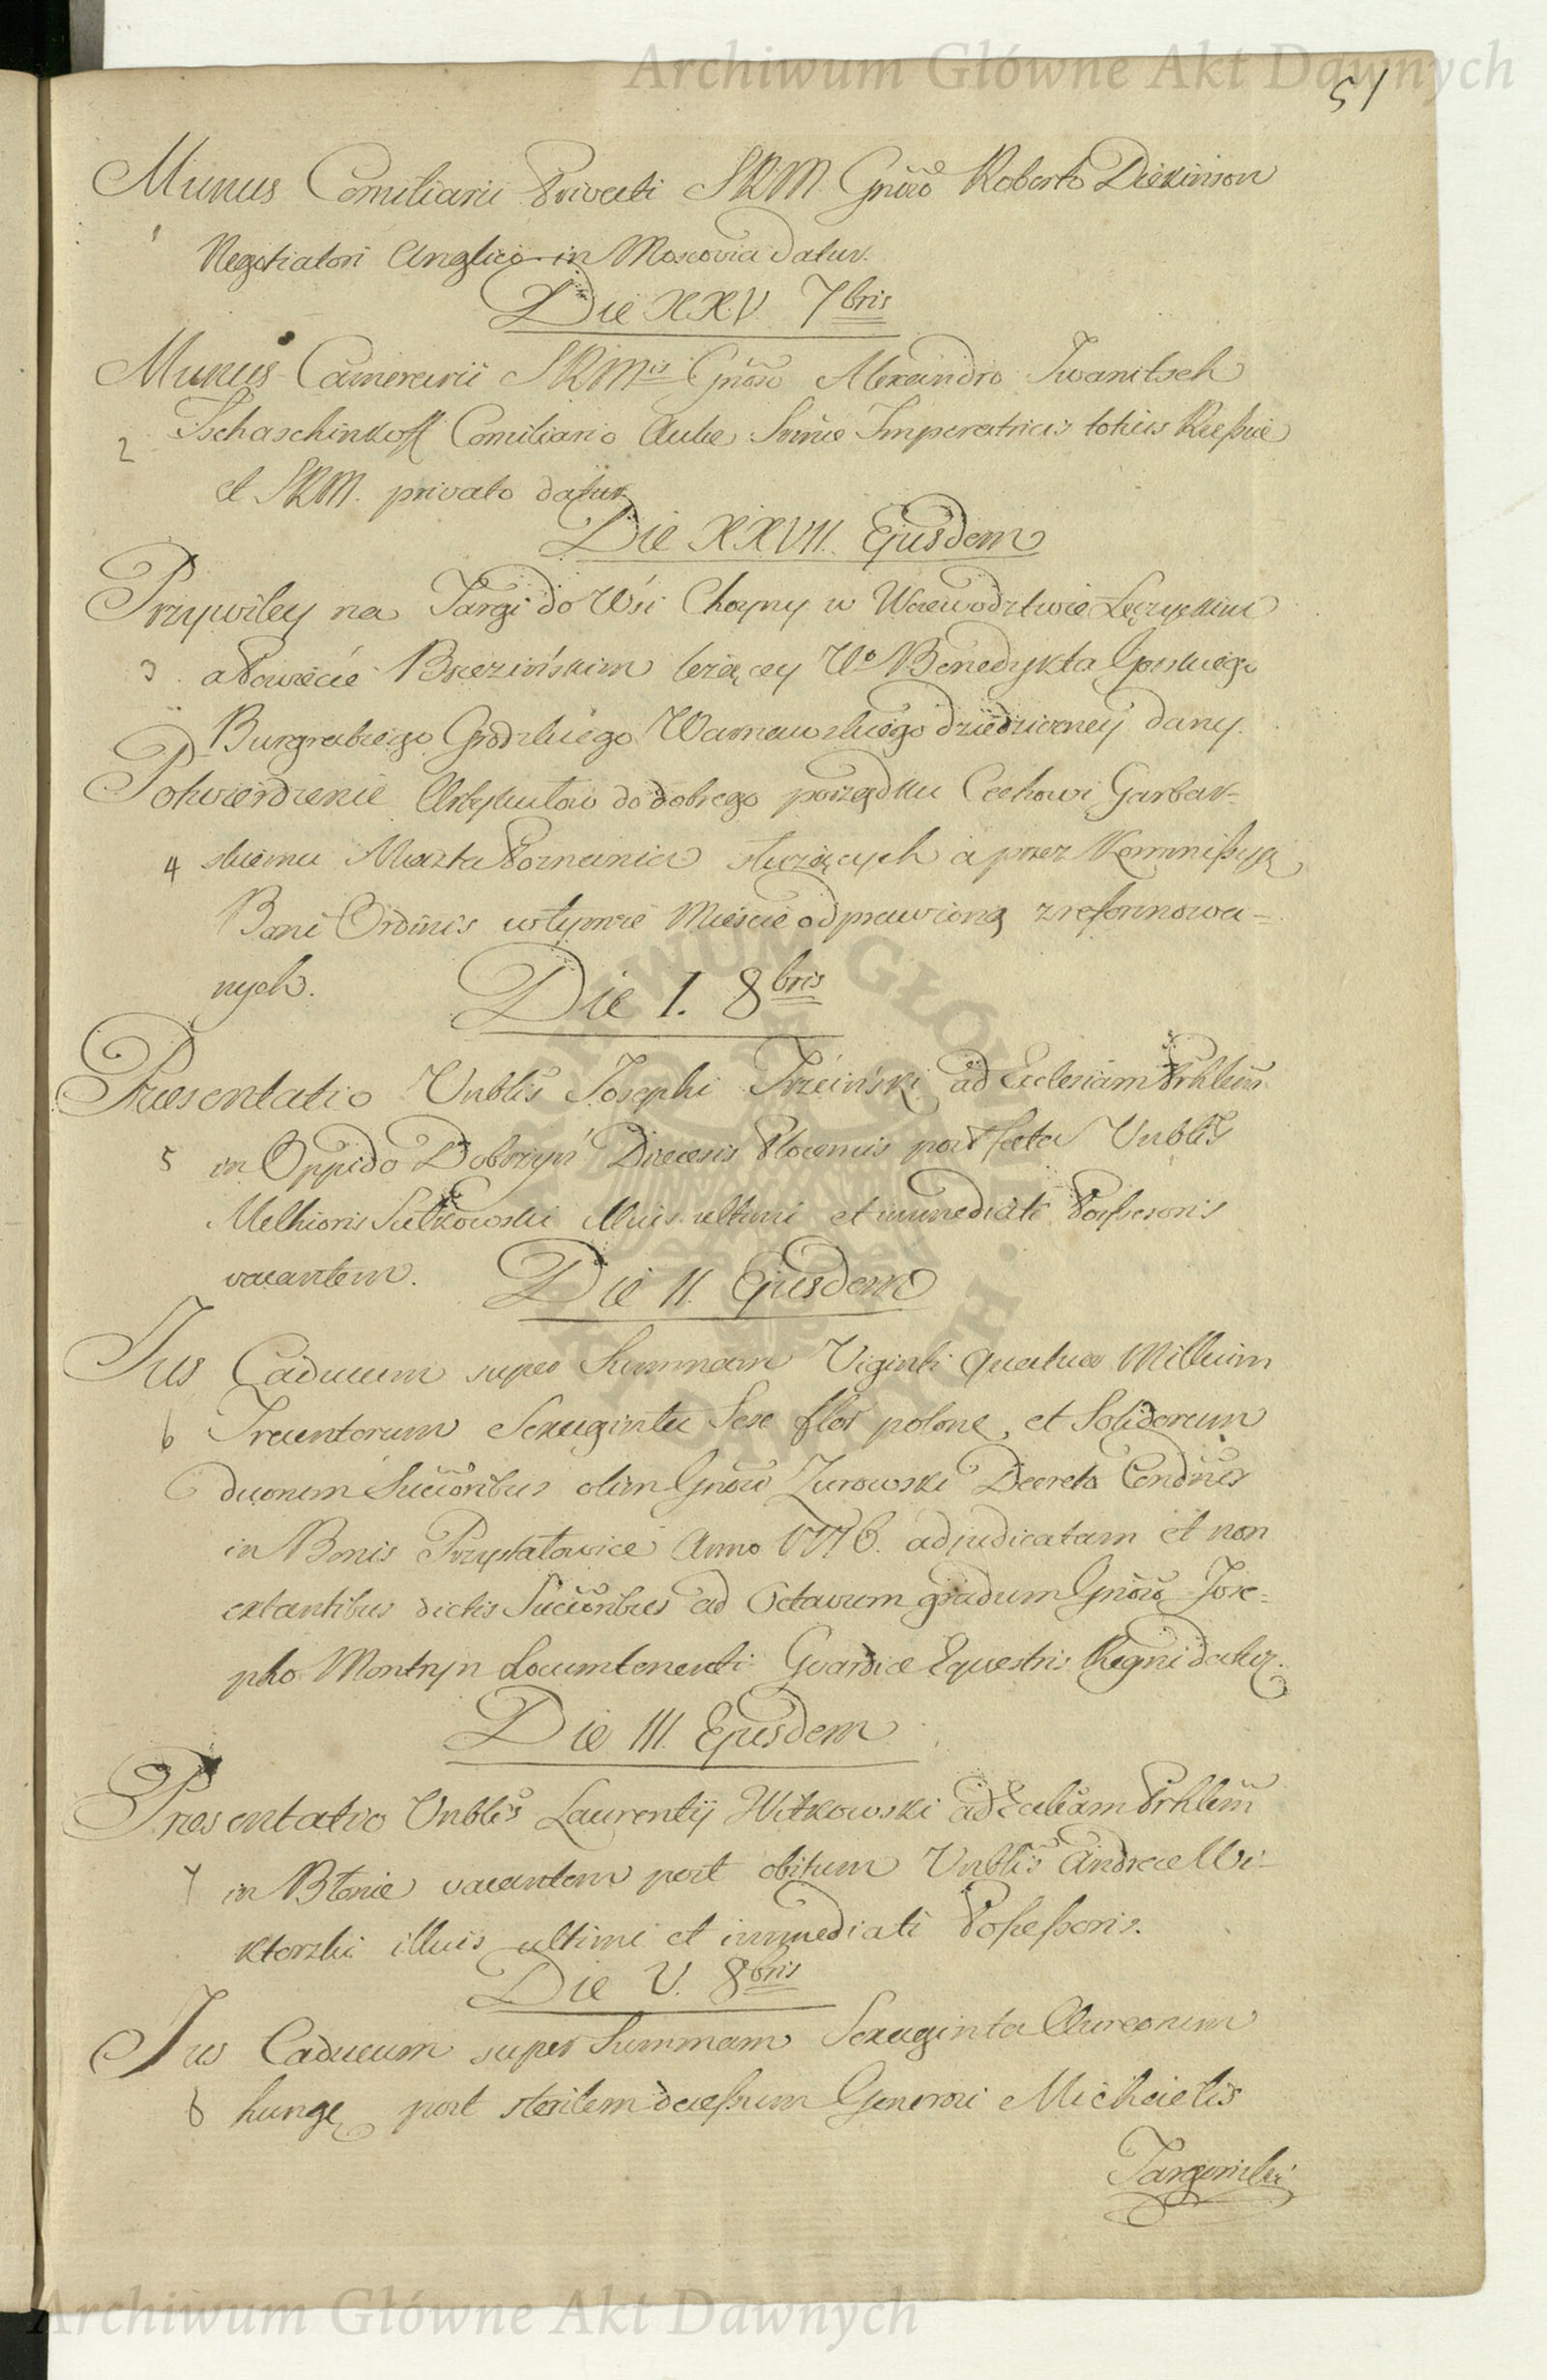 Archiwum Główne Akt Dawnych
51
Munus Consiliarii Privati SRM Gnoso Roberto Dickinson
1 Negotiatori Anglico in Moscovia datur.
Die XXV. 7bris
Munus Camerarii SRMis Gnoso Alexandro Iwanitsch
Tschaschinkoff Consiliario Aulae Smae Imperatricis totius Russiae
2 et SRM. privato datur
Die XXVII. Ejusdem
Przywiley na Targi do Wsi Choyny w Woiewodztwie Łęczyckim
3 a Powiecie Brzezińskim leżącey Wo Benedykta Gorskiego
Burgrabiego Grodzkiego Warszawskiego dziedziczney dany.
Potwierdzenie Artykułow do dobrego porządku Cechowi Garbar-
4 skiemu Miasta Poznania służących a przez Kommissyą
Boni Ordinis w tymże Mieście odprawioną zreformowa-
nych.
Die I. 8bris
Praesentatio Vnblis Josephi Trzciński ad Ecclesiam Prhlem
5 in Oppido Dobrzyń Diecesis Plocensis post fata Vnblis
Melhioris Sutkowski illius ultimi et immediati Possessoris
vacantem.
Die II. Ejusdem
Jus Caducum super Summam Viginti quatuor Millium
6 Trecentorum Sexaginta Sex flor polone. et Solidorum
duorum Succoribus olim Gnoso Zurowski Decreto Condnis
in Bonis Przystałowice Anno 1776. adjudicatam et non
extantibus dictis Succoribus ad Octavum gradum Gnoso Jose-
pho Montryn Locumtenenti Gvardiae Equestris Regni datur.
Die III. Ejusdem
Presentatio Vnblis Laurentij Witkowski ad Ecclesiam Prhlem
7 in Błonie vacantem post obitum Vnblis Andreae Wi-
ktorski illius ultimi et immediati Possessoris.
Die V. 8bris
Jus Caducum super Summam Sexaginta Aureorum
8 hunge post sterilem decessum Generosi Michaelis
Targoński
Archiwum Główne Akt Dawnych